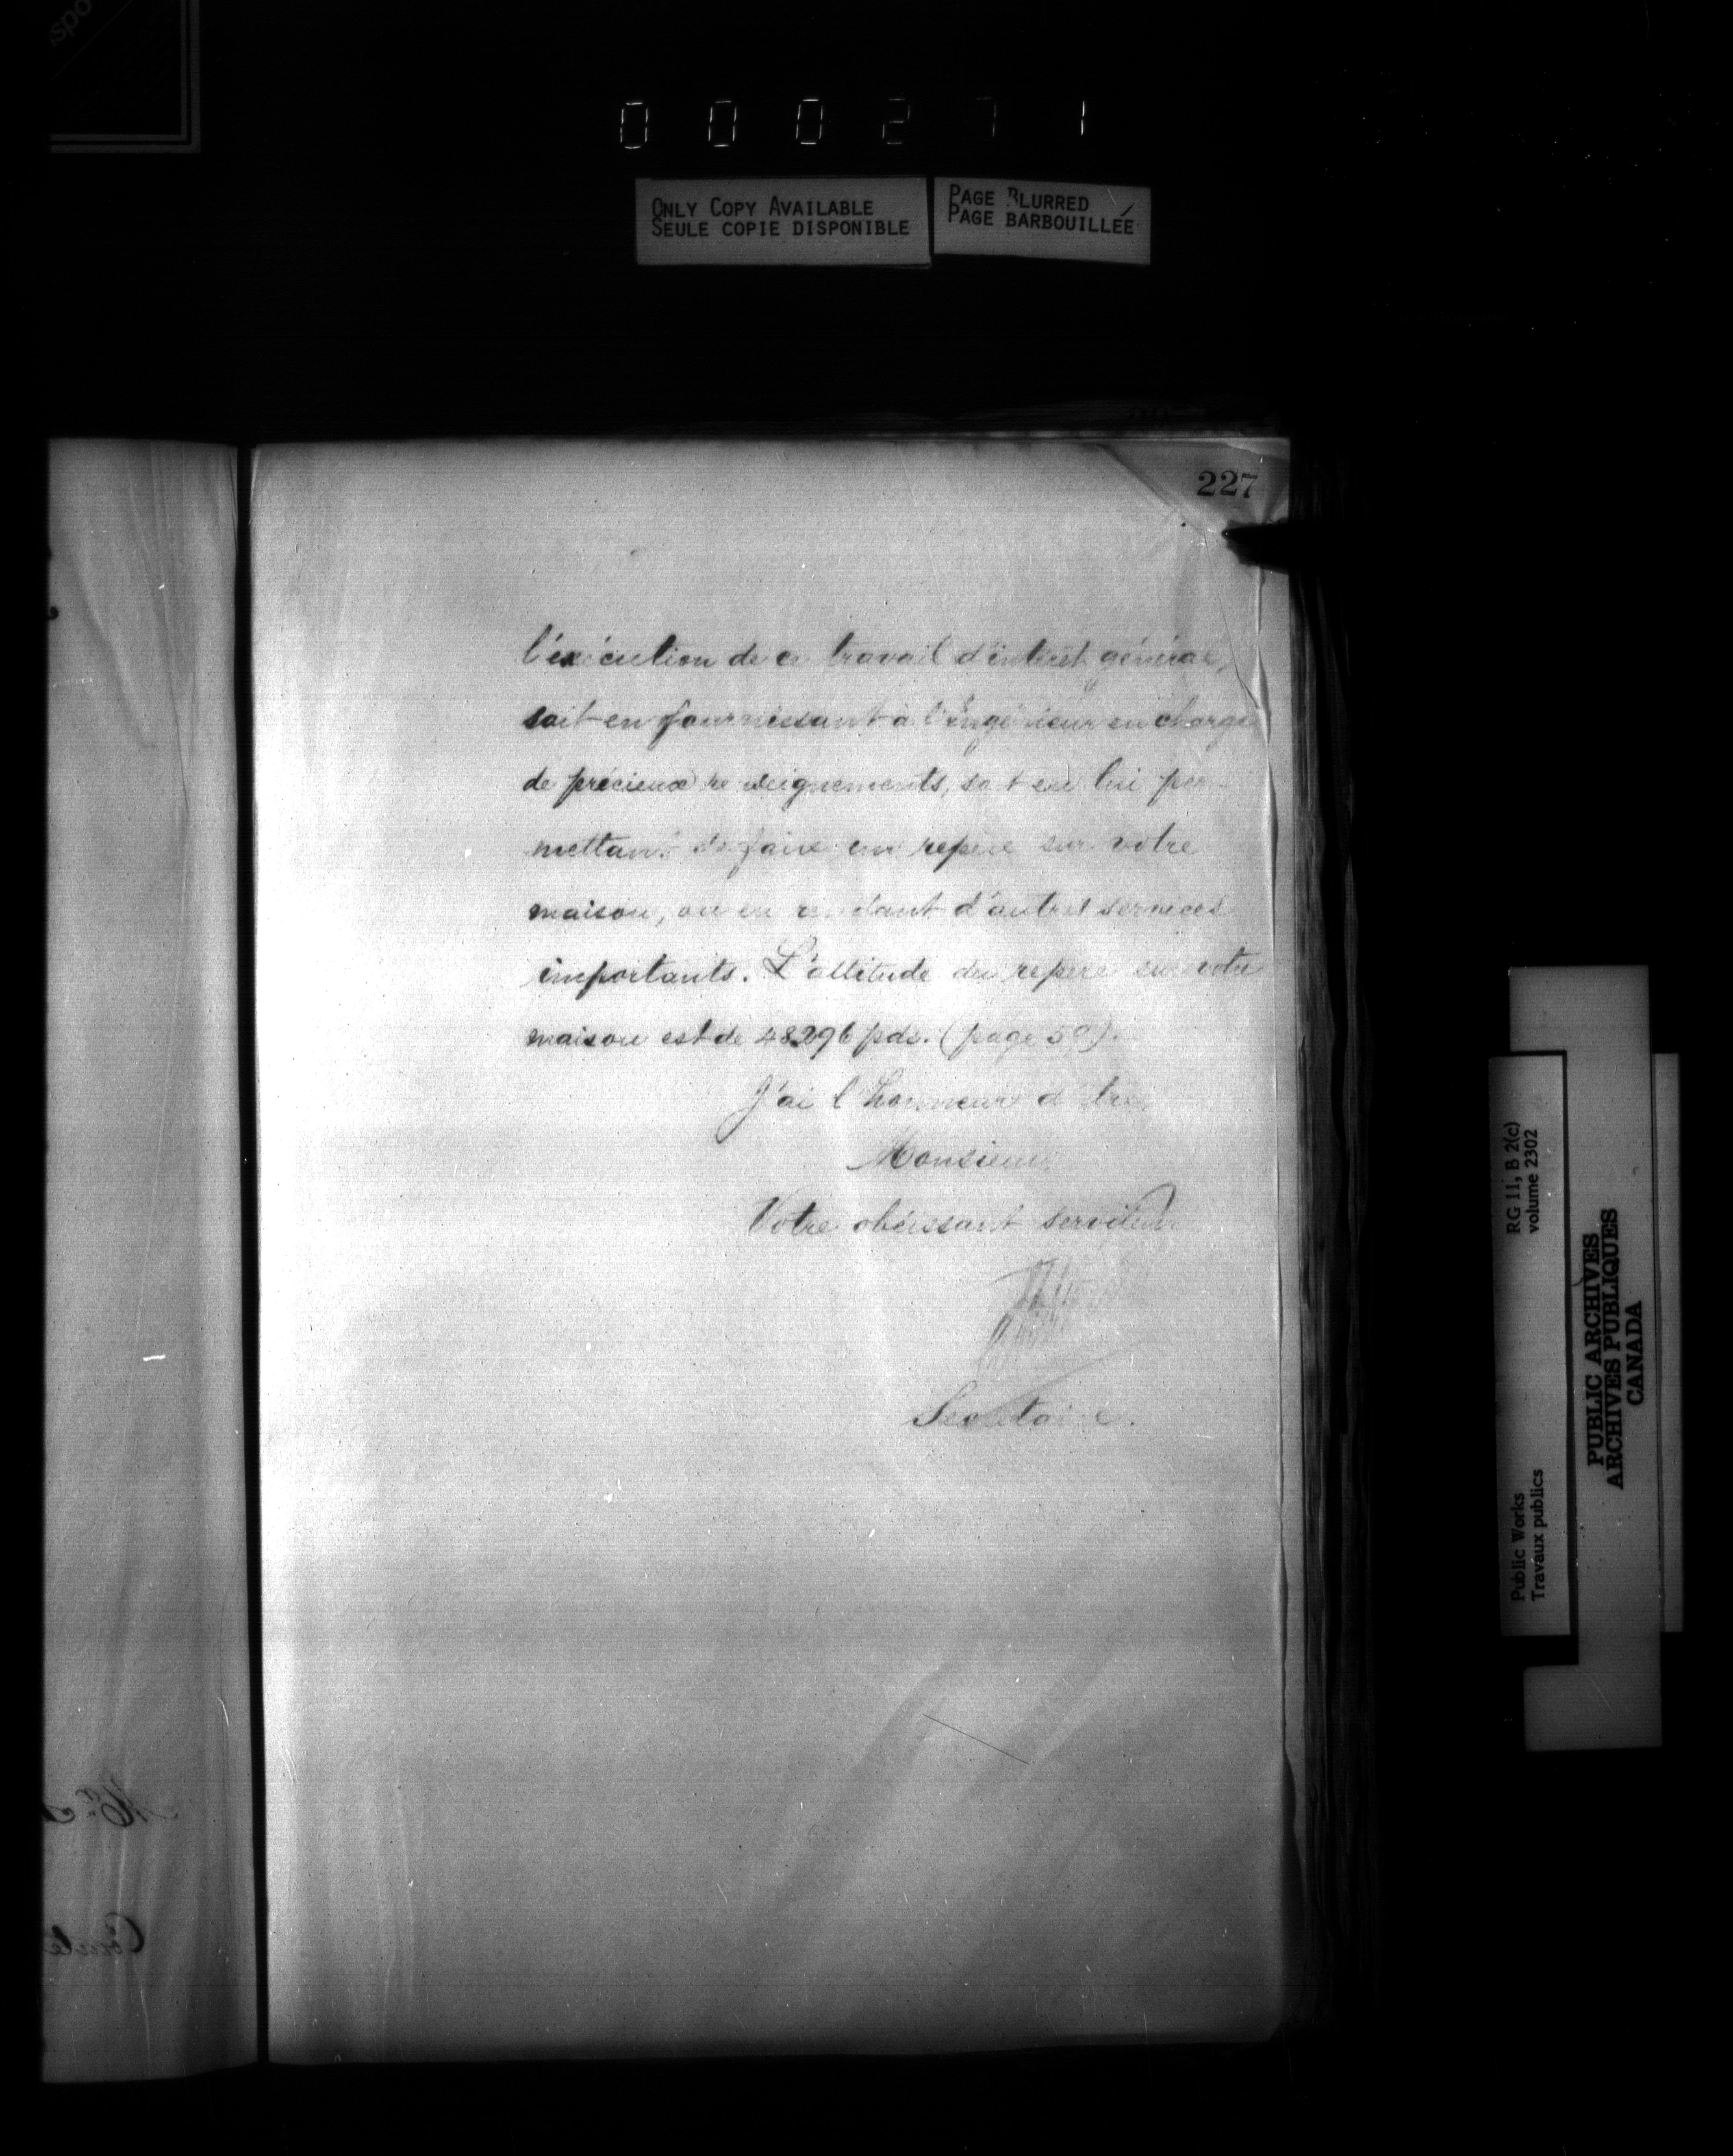 000271
ONLY COPY AVAILABLE
SEULE COPIE DISPONIBLE
PAGE BLURRED
PAGE BARBOUILLÉE
227
l'exécution de ce travail d'intérêt général,
soit en fournissant à l'Ingénieur en charge
de précieux renseignements, soit en lui per-
mettant de faire un repère sur votre
maison, ou en rendant d'autres services
importants. L'altitude du repère sur votre
maison est de 48296 pds. (page 59).
J'ai l'honneur d'être,
Monsieur,
Votre obéissant serviteur
Secrétaire.
RG 11, B 2(c)
volume 2302
Public Works
Travaux publics
PUBLIC ARCHIVES
ARCHIVES PUBLIQUES
CANADA